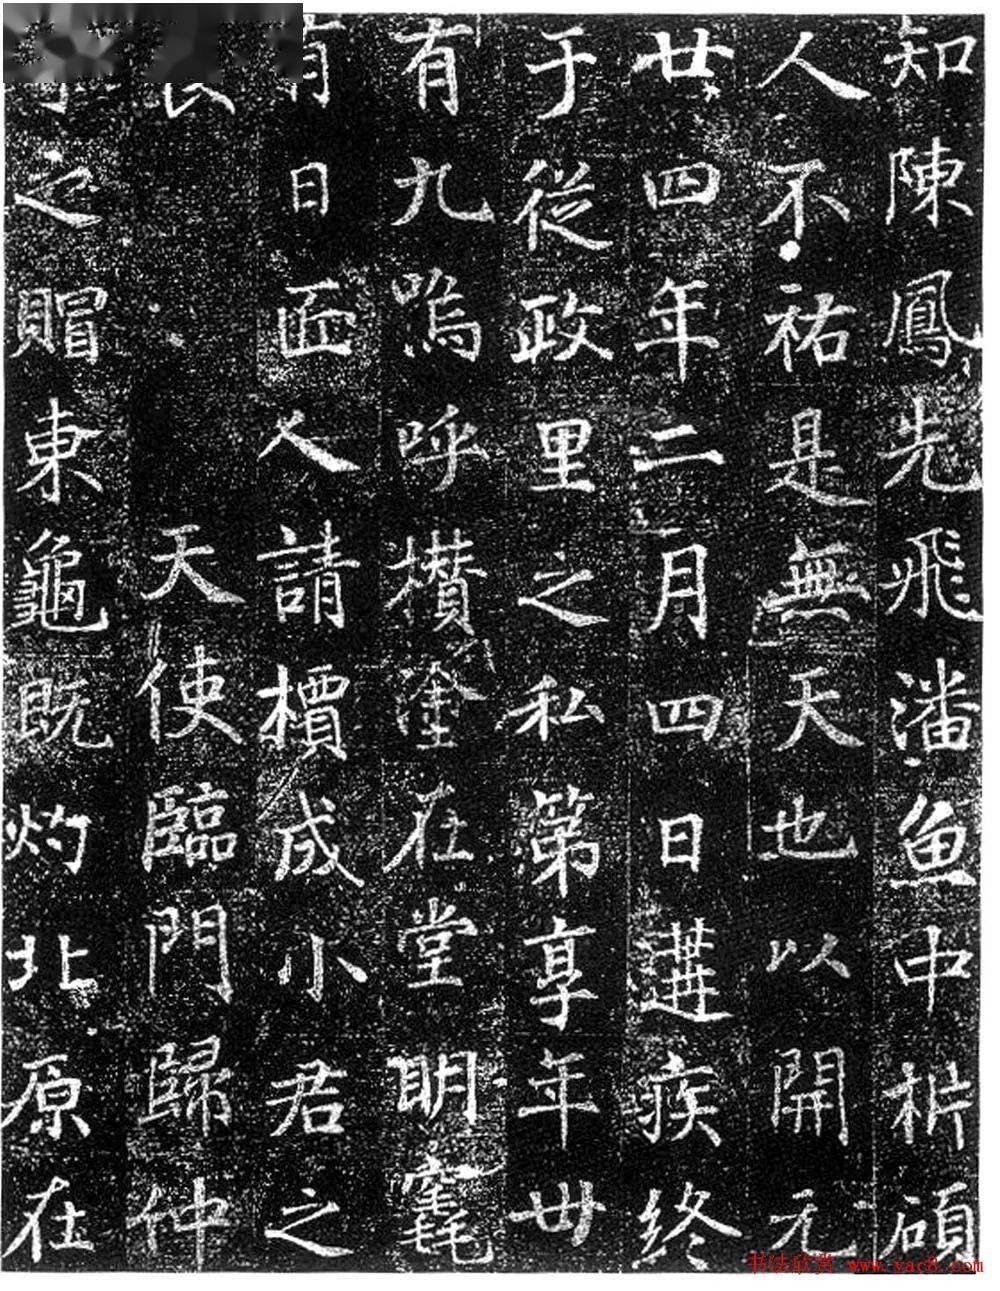 知陳鳳先飛潘魚中枿碩
人不祐是無天也以開元
廿四年二月四日遘疾終
于從政里之私第享年卌
有九嗚呼欑塗在堂明
有日匠人請檟成小君之
天使臨門歸仲
之賵東龜既灼北原在
书法欣赏 www.yac8.com